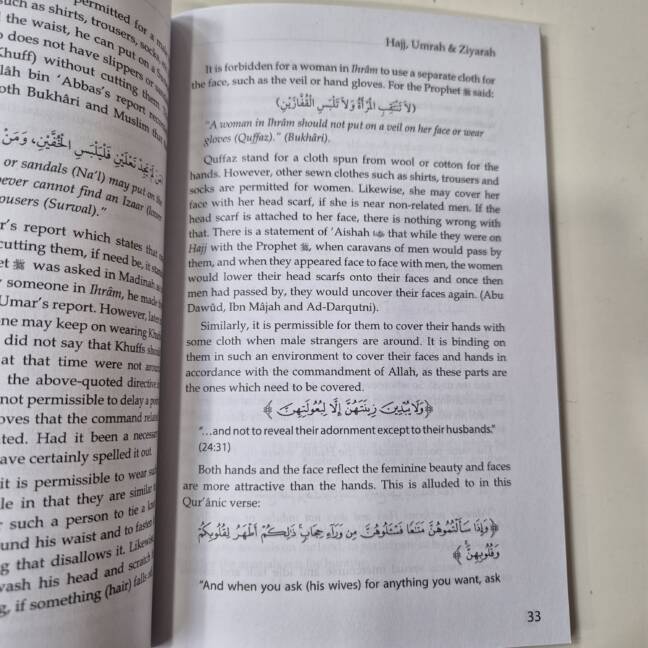 permitted for a
such as shirts, trousers, socks,
the waist, he can put on a
does not have slippers or
Khuff) without cutting them
lâh bin 'Abbas's report
oth Bukhâri and Muslim that
نَعْلَيْنِ فَلْيَلْبَسِ الْخُفَّيْنِ، وَمَنْ
or sandals (Na'l) may put on the
ever cannot find an Izaar (lower
ousers (Surwal)."
r's report which states that
cutting them, if need be, it
et ﷺ was asked in Madinah
someone in Ihrâm, he made
Umar's report. However, later
ne may keep on wearing
did not say that Khuffs
at that time were not
the above-quoted directive
not permissible to delay a
oves that the command
ted. Had it been a necessary
ave certainly spelled it out.
it is permissible to wear
le in that they are similar
such a person to tie a
und his waist and to fasten
g that disallows it. Likewise
wash his head and scratch
g, if something (hair) falls
Hajj, Umrah & Ziyarah
It is forbidden for a woman in Ihrâm to use a separate cloth for
the face, such as the veil or hand gloves. For the Prophet ﷺ said:
(لَا تَنْتَقِبِ الْمَرْأَةُ وَلَا تَلْبَسِ الْقُفَّازَيْنِ)
"A woman in Ihrâm should not put on a veil on her face or wear
gloves (Quffaz)." (Bukhâri).
Quffaz stand for a cloth spun from wool or cotton for the
hands. However, other sewn clothes such as shirts, trousers and
socks are permitted for women. Likewise, she may cover her
face with her head scarf, if she is near non-related men. If the
head scarf is attached to her face, there is nothing wrong with
that. There is a statement of 'Aishah that while they were on
Hajj with the Prophet ﷺ, when caravans of men would pass by
them, and when they appeared face to face with men, the women
would lower their head scarfs onto their faces and once then
men had passed by, they would uncover their faces again. (Abu
Dawûd, Ibn Mâjah and Ad-Darqutni).
Similarly, it is permissible for them to cover their hands with
some cloth when male strangers are around. It is binding on
them in such an environment to cover their faces and hands in
accordance with the commandment of Allah, as these parts are
the ones which need to be covered.
﴿وَلَا يُبْدِينَ زِينَتَهُنَّ إِلَّا لِبُعُولَتِهِنَّ﴾
"…and not to reveal their adornment except to their husbands."
(24:31)
Both hands and the face reflect the feminine beauty and faces
are more attractive than the hands. This is alluded to in this
Qur'ânic verse:
﴿وَإِذَا سَأَلْتُمُوهُنَّ مَتَاعًا فَسْـَٔلُوهُنَّ مِن وَرَآءِ حِجَابٍ ذَٰلِكُمْ أَطْهَرُ لِقُلُوبِكُمْ
وَقُلُوبِهِنَّ﴾
"And when you ask (his wives) for anything you want, ask
33